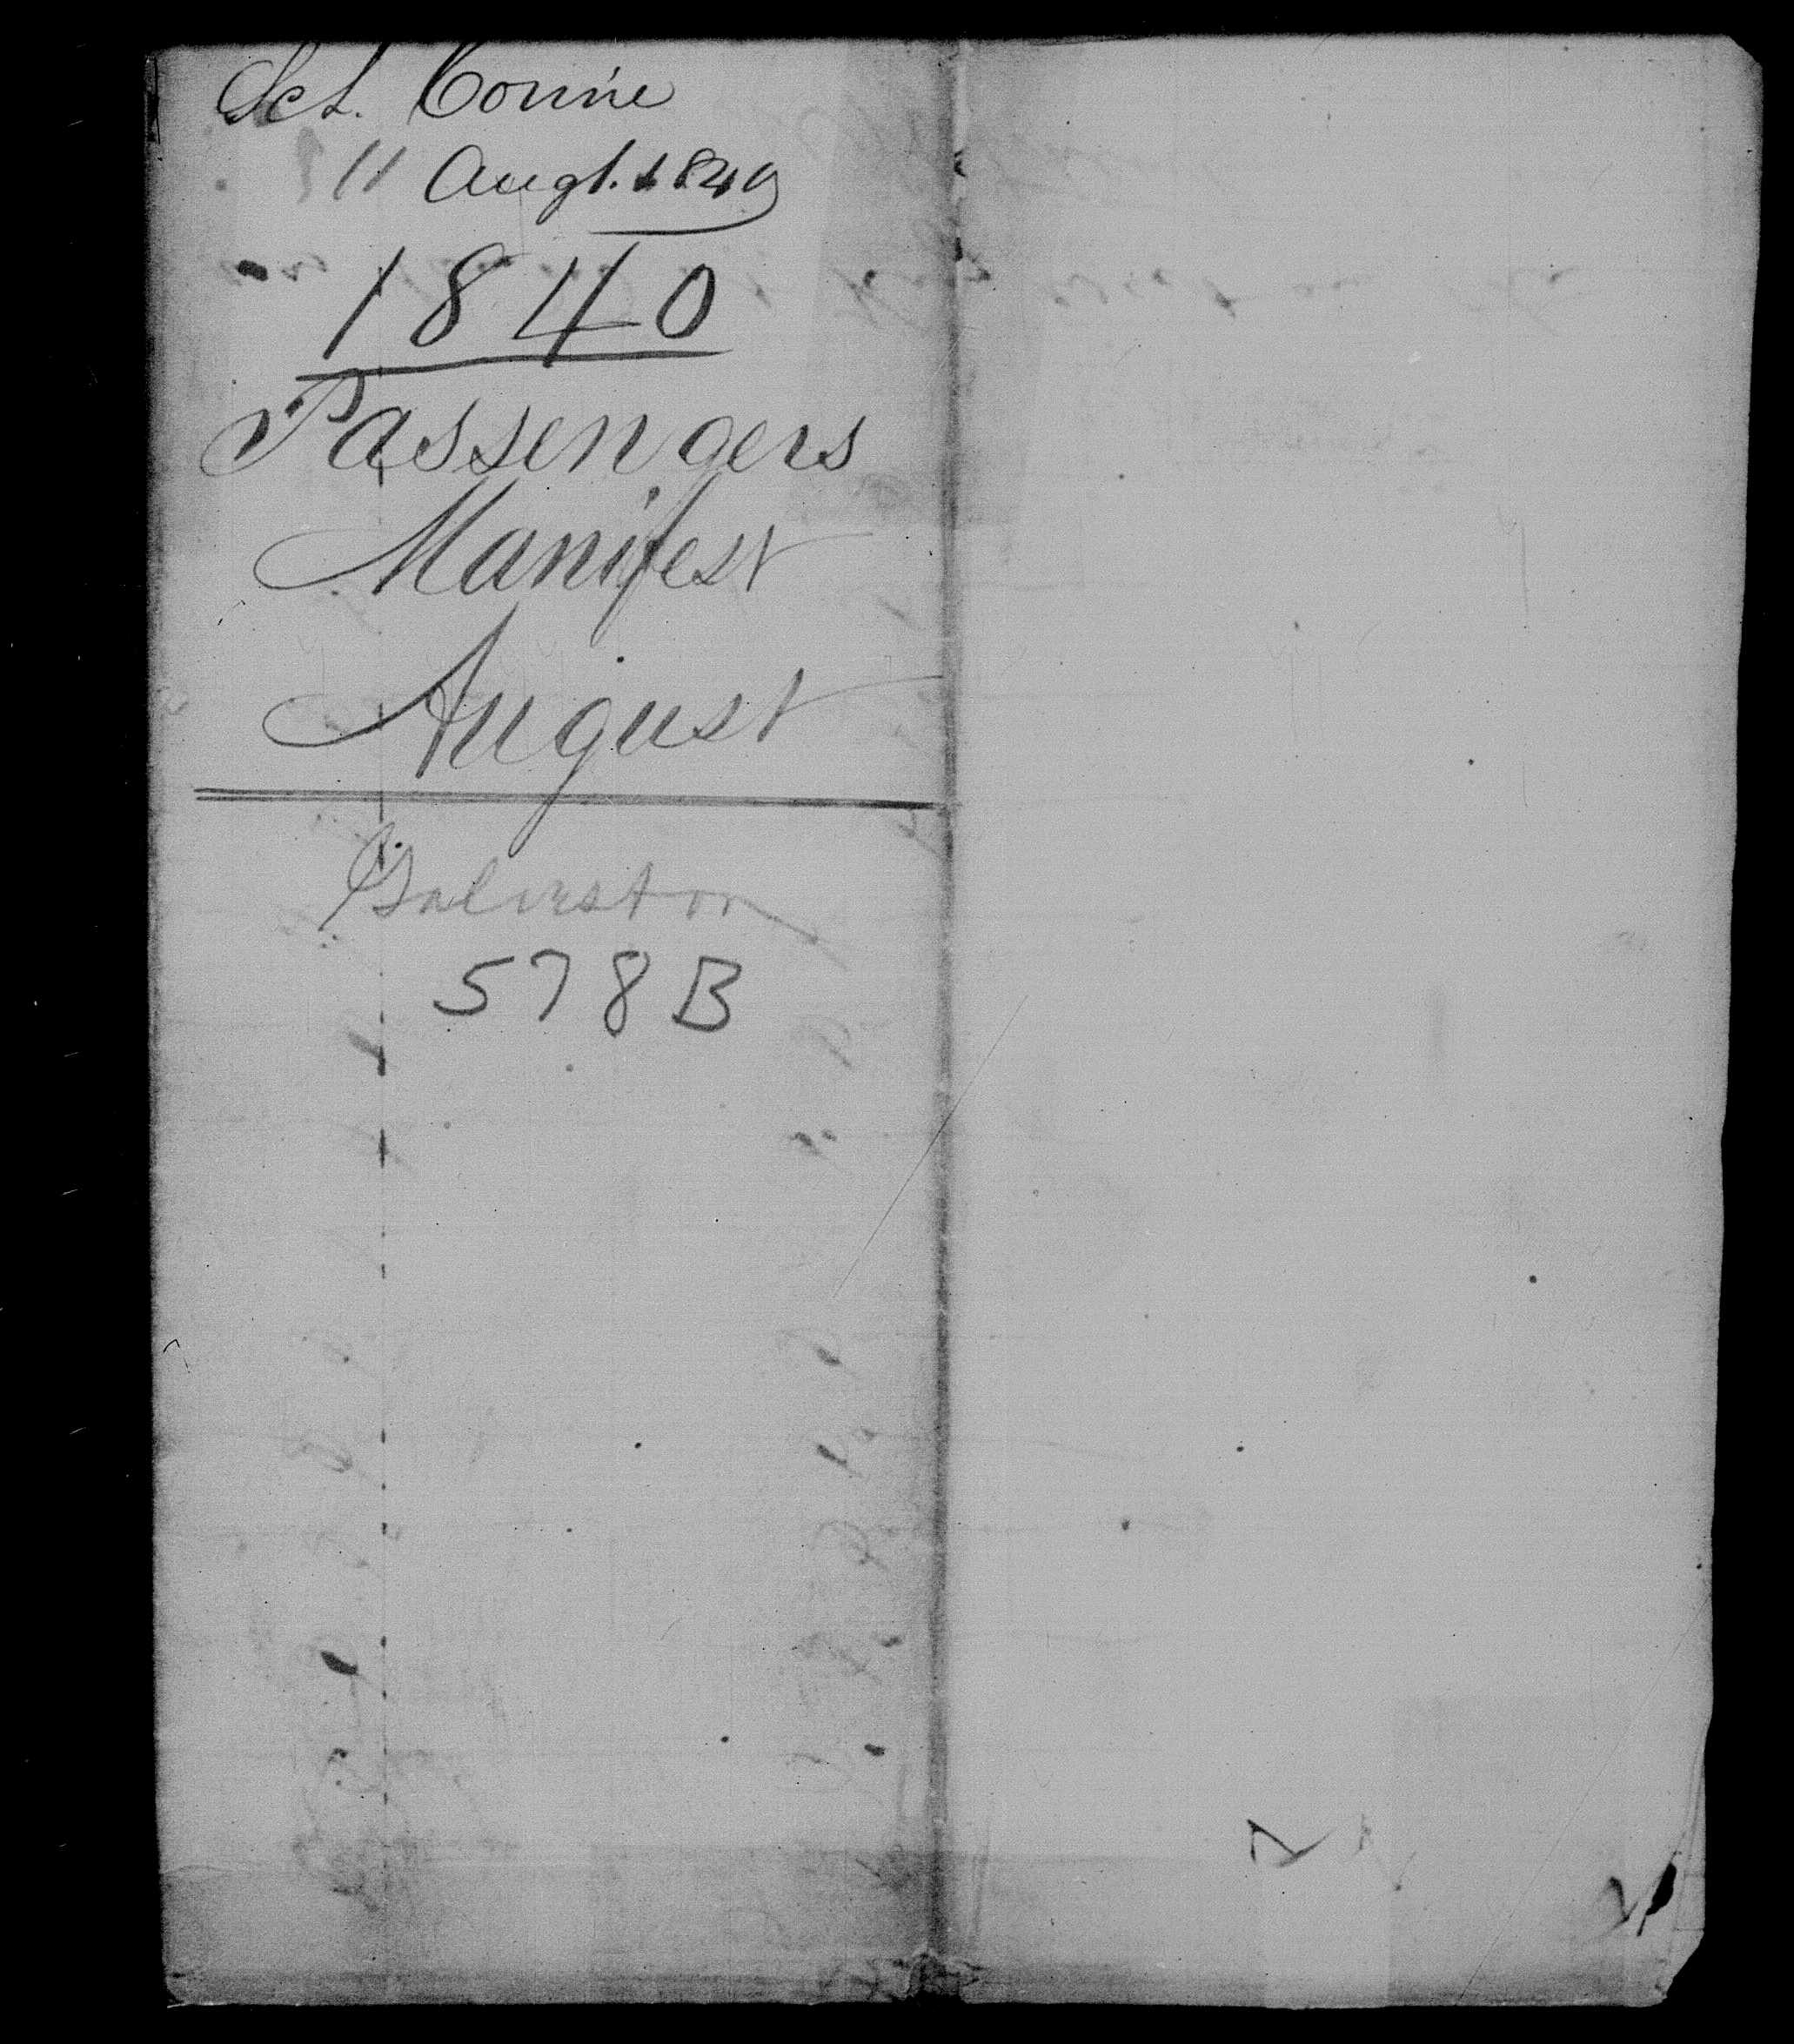 Sch. Corine
11 Augt. 1840
1840
Passengers
Manifest
August
Galveston
578B